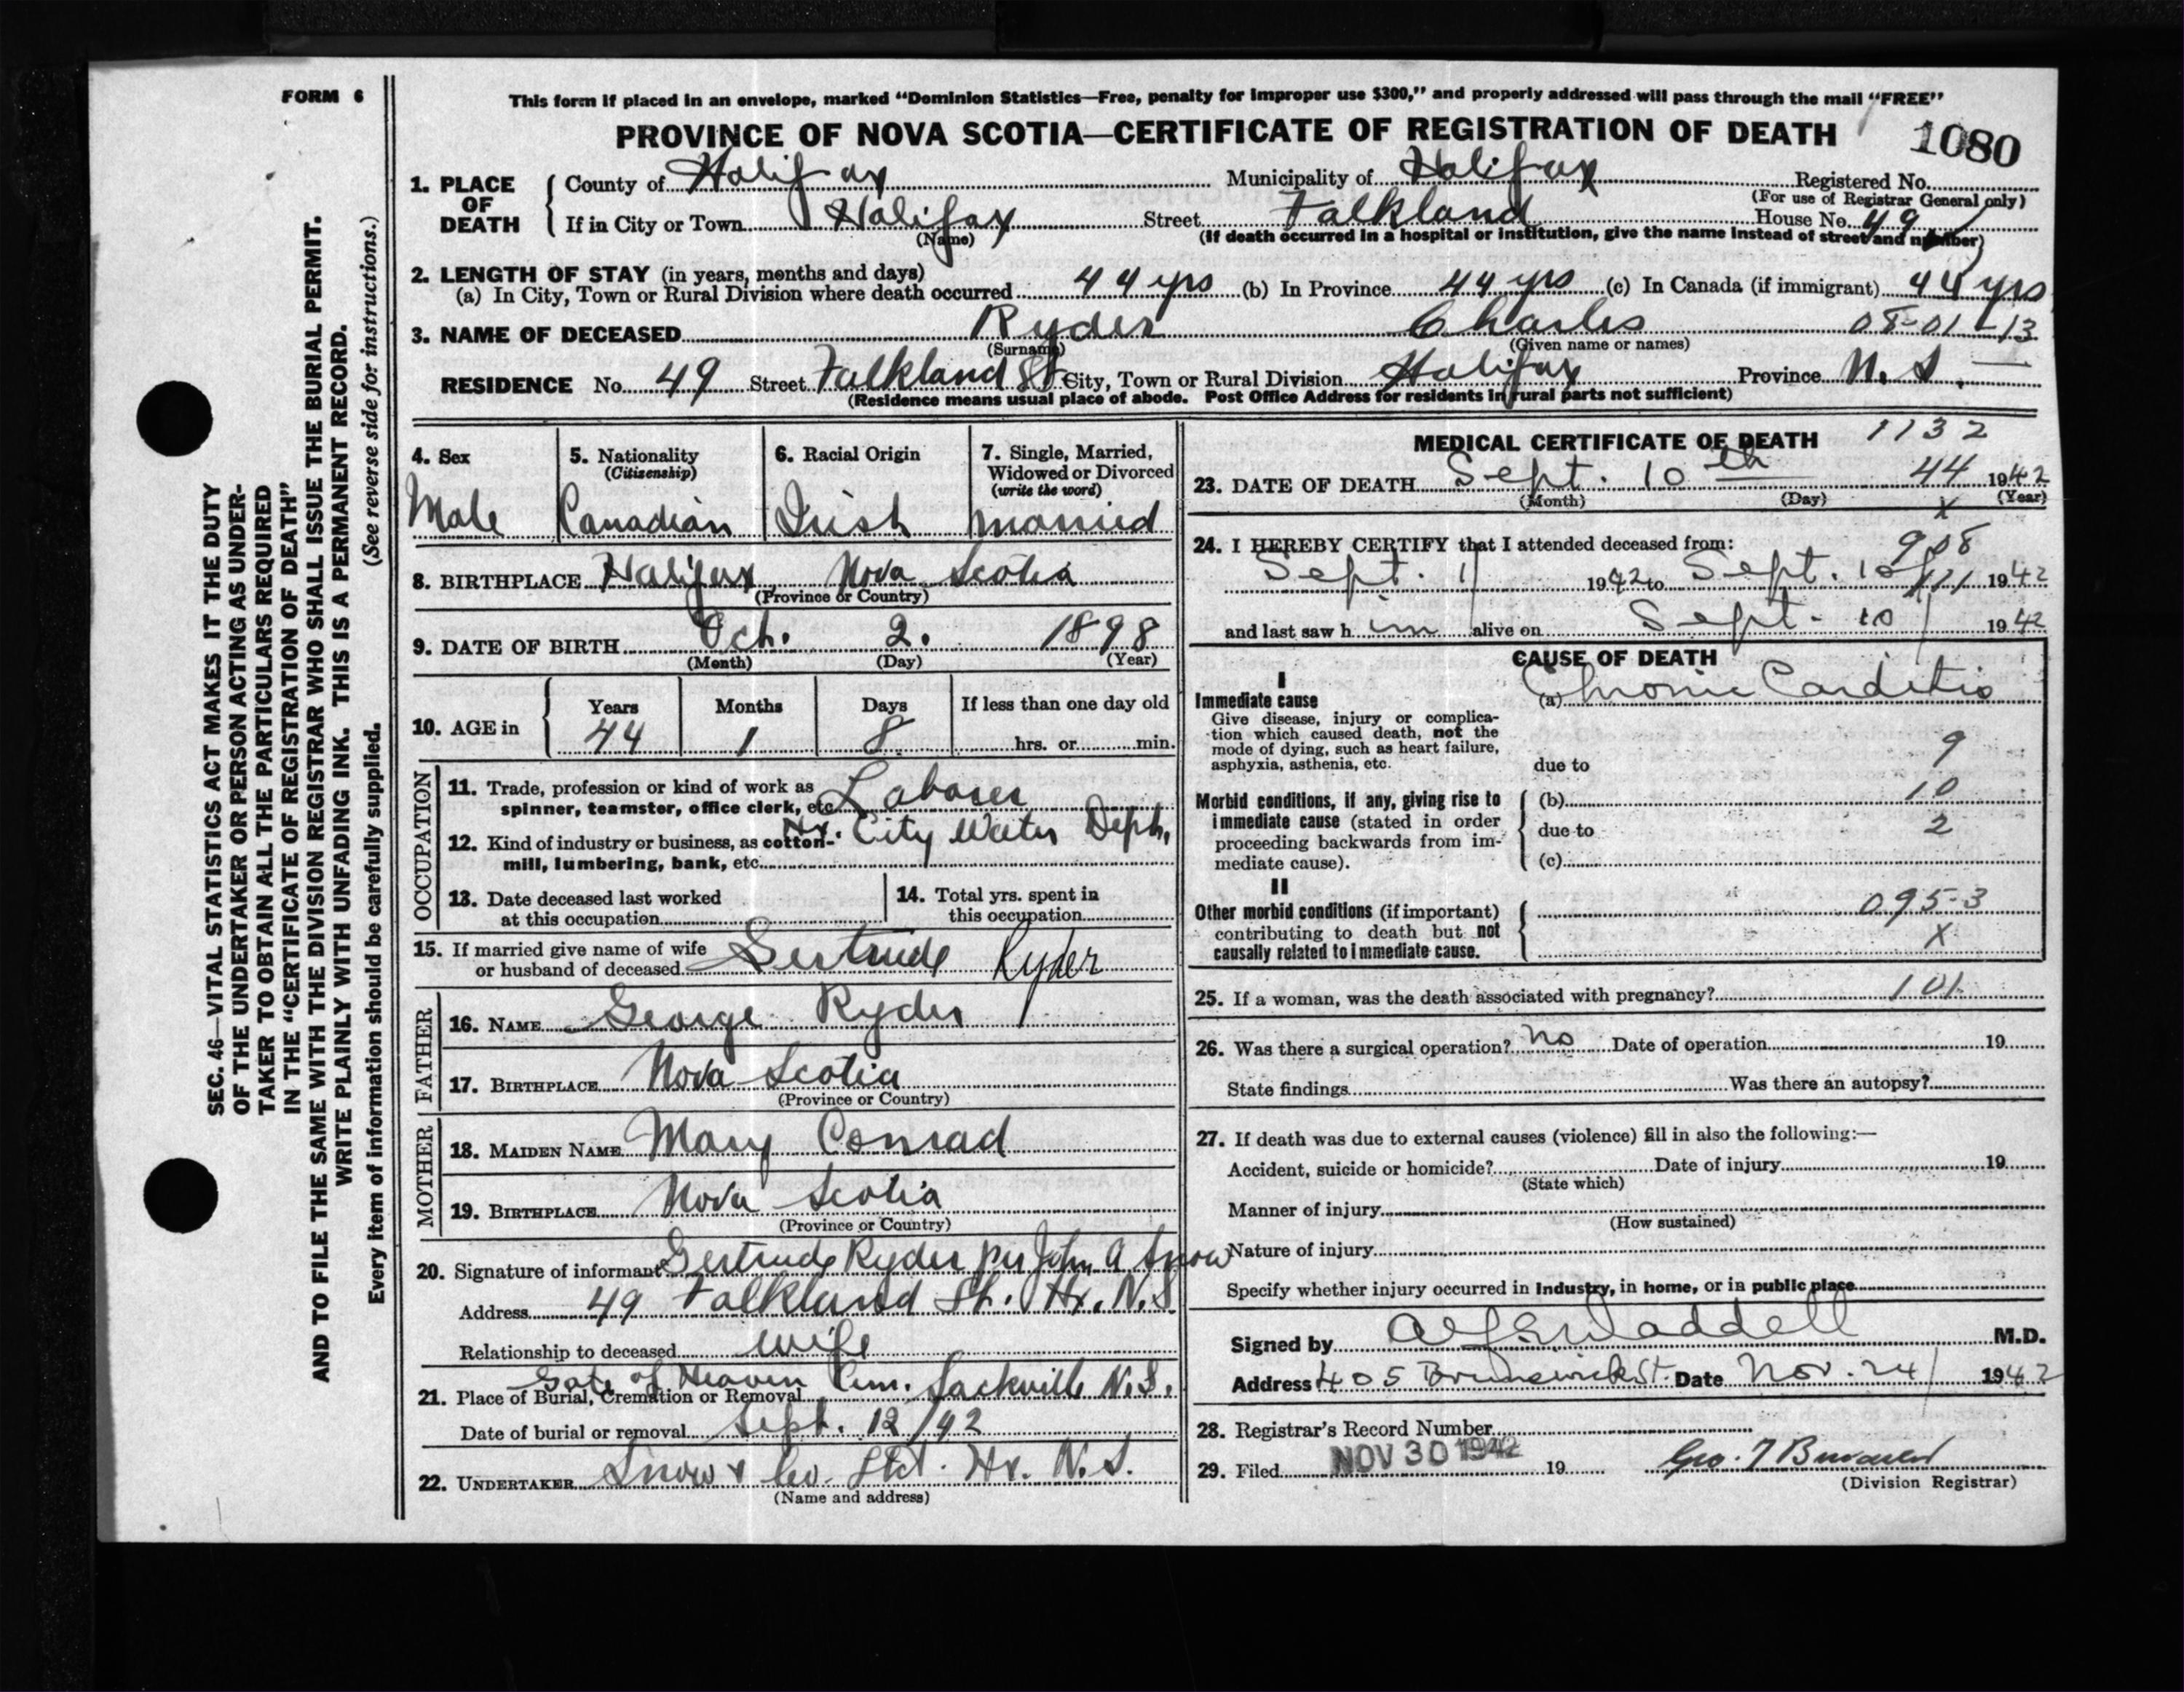 FORM 6
This form if placed in an envelope, marked "Dominion Statistics—Free, penalty for improper use $300," and properly addressed will pass through the mail "FREE"
PROVINCE OF NOVA SCOTIA—CERTIFICATE OF REGISTRATION OF DEATH 1080
SEC. 46—VITAL STATISTICS ACT MAKES IT THE DUTY
OF THE UNDERTAKER OR PERSON ACTING AS UNDER-
TAKER TO OBTAIN ALL THE PARTICULARS REQUIRED
IN THE "CERTIFICATE OF REGISTRATION OF DEATH"
AND TO FILE THE SAME WITH THE DIVISION REGISTRAR WHO SHALL ISSUE THE BURIAL PERMIT.
WRITE PLAINLY WITH UNFADING INK. THIS IS A PERMANENT RECORD.
Every item of information should be carefully supplied. (See reverse side for instructions.)
1. PLACE OF DEATH County of Halifax Municipality of Halifax Registered No.
(For use of Registrar General only)
If in City or Town Halifax Street Falkland House No. 49
(Name) (If death occurred in a hospital or institution, give the name instead of street and number)
2. LENGTH OF STAY (in years, months and days)
(a) In City, Town or Rural Division where death occurred 44 yrs (b) In Province 44 yrs (c) In Canada (if immigrant) 44 yrs
3. NAME OF DECEASED Ryder Charles 08-01-13
(Surname) (Given name or names)
RESIDENCE No. 49 Street Falkland St City, Town or Rural Division Halifax Province N.S. —
(Residence means usual place of abode. Post Office Address for residents in rural parts not sufficient)
4. Sex 5. Nationality 6. Racial Origin 7. Single, Married,
(Citizenship) Widowed or Divorced
(write the word)
Male Canadian Irish married
8. BIRTHPLACE Halifax Nova Scotia
(Province or Country)
9. DATE OF BIRTH Oct. 2. 1898
(Month) (Day) (Year)
10. AGE in Years Months Days If less than one day old
44 1 8 hrs. or min.
OCCUPATION
11. Trade, profession or kind of work as
spinner, teamster, office clerk, etc. Laborer
12. Kind of industry or business, as cotton- Hx. City Water Dept.
mill, lumbering, bank, etc.
13. Date deceased last worked 14. Total yrs. spent in
at this occupation this occupation
15. If married give name of wife
or husband of deceased Gertrude Ryder
FATHER
16. NAME George Ryder
17. BIRTHPLACE Nova Scotia
(Province or Country)
MOTHER
18. MAIDEN NAME Mary Conrad
19. BIRTHPLACE Nova Scotia
(Province or Country)
20. Signature of informant Gertrude Ryder per John A Snow
Address 49 Falkland St. Hx. N.S
Relationship to deceased wife
Gate of Heaven Cem. Sackville N.S.
21. Place of Burial, Cremation or Removal
Date of burial or removal Sept. 12/42
22. UNDERTAKER Snow & Co. Ltd. Hx. N.S.
(Name and address)
MEDICAL CERTIFICATE OF DEATH 1132
23. DATE OF DEATH Sept. 10th 44 1942
(Month) (Day) (Year)
x
24. I HEREBY CERTIFY that I attended deceased from: 908
Sept. 1/ 1942 to Sept. 10 1942
and last saw him alive on Sept. 10/ 1942
CAUSE OF DEATH
I
Immediate cause (a) Chronic Carditis
Give disease, injury or complica-
tion which caused death, not the
mode of dying, such as heart failure,
asphyxia, asthenia, etc. due to 9
Morbid conditions, if any, giving rise to (b) 10
immediate cause (stated in order due to 2
proceeding backwards from im-
mediate cause). (c)
II
Other morbid conditions (if important) 095-3
contributing to death but not X
causally related to immediate cause.
25. If a woman, was the death associated with pregnancy? 101
26. Was there a surgical operation? no Date of operation 19
State findings Was there an autopsy?
27. If death was due to external causes (violence) fill in also the following:—
Accident, suicide or homicide? Date of injury 19
(State which)
Manner of injury
(How sustained)
Nature of injury
Specify whether injury occurred in industry, in home, or in public place
Signed by Waddell M.D.
Address 405 Brunswick St. Date Nov. 24/ 1942
28. Registrar's Record Number
29. Filed NOV 30 1942 19
(Division Registrar)